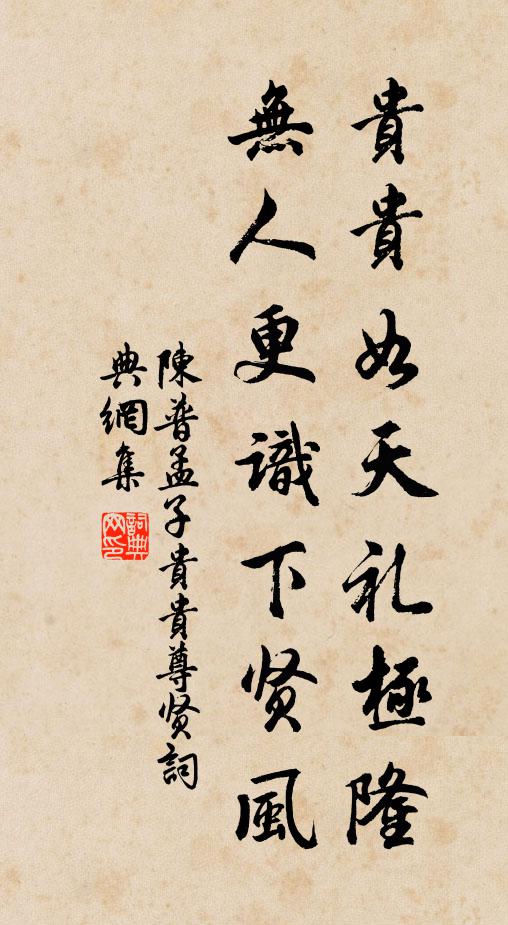 貴貴如天礼極隆
無人更識下贤風
陳普孟子貴貴尊贤詞
典網集
詞典网印